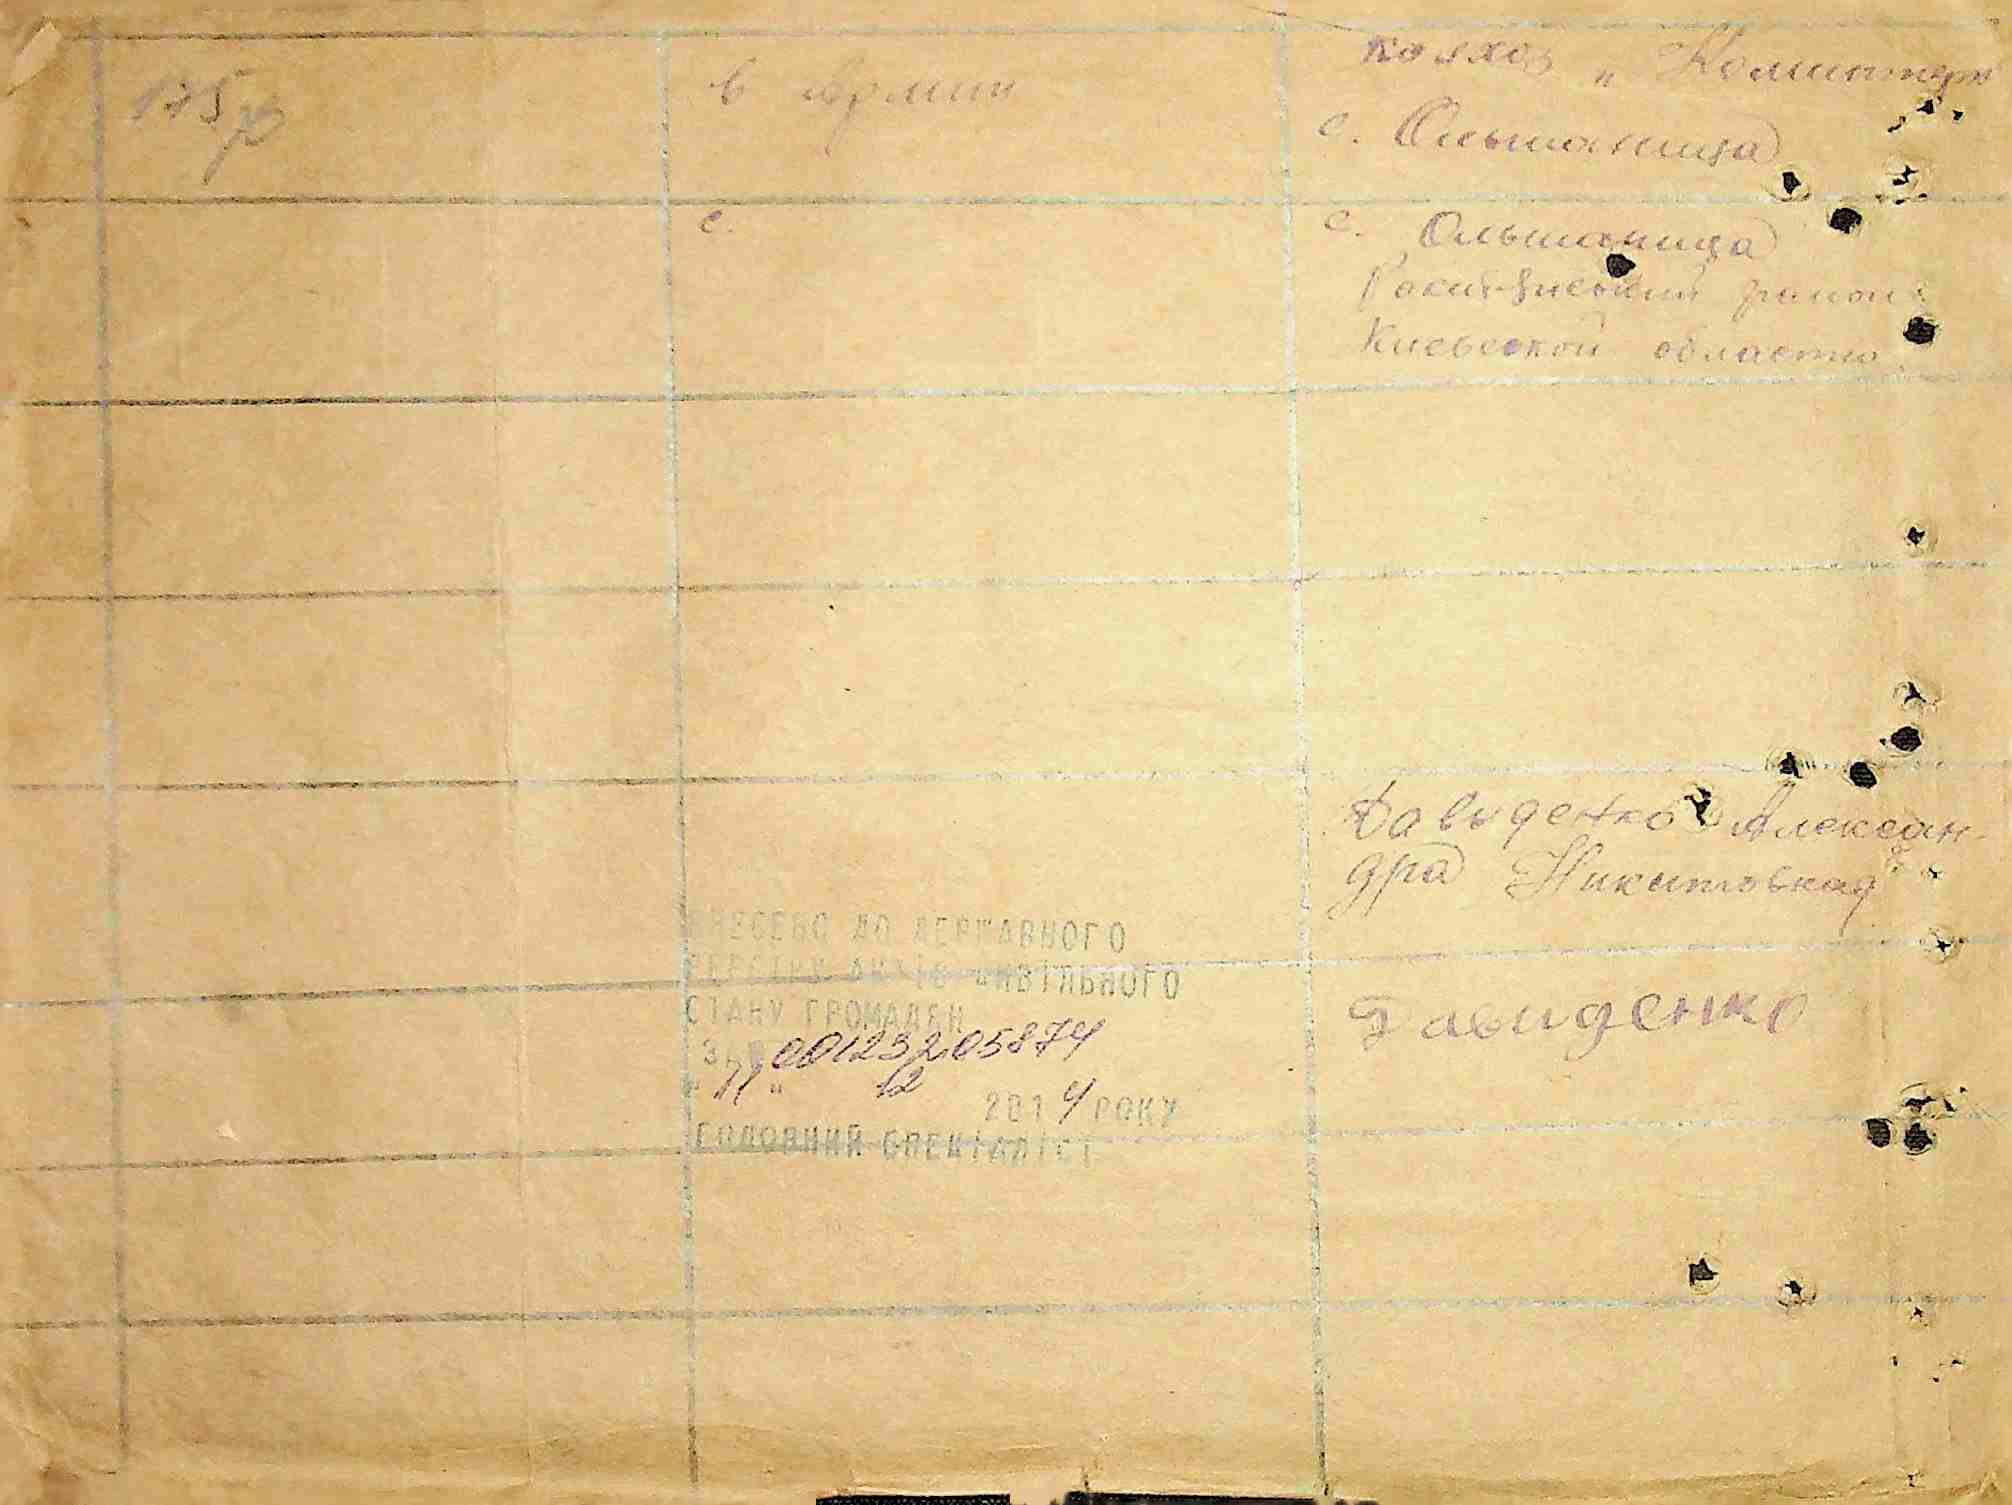 175
в армии
колхоз „ Коминтерн
с. Ольшаница
с.
с. Ольшаница
Киевской области
Давиденко Алексан-
дра Никитовная
ВНЕСЕНО ДО ДЕРЖАВНОГО
РЕЄСТРУ АКТІВ ЦИВІЛЬНОГО
СТАНУ ГРОМАДЯН
00123205874
12
2014 РОКУ
ГОЛОВНИЙ СПЕЦІАЛІСТ
Давиденко